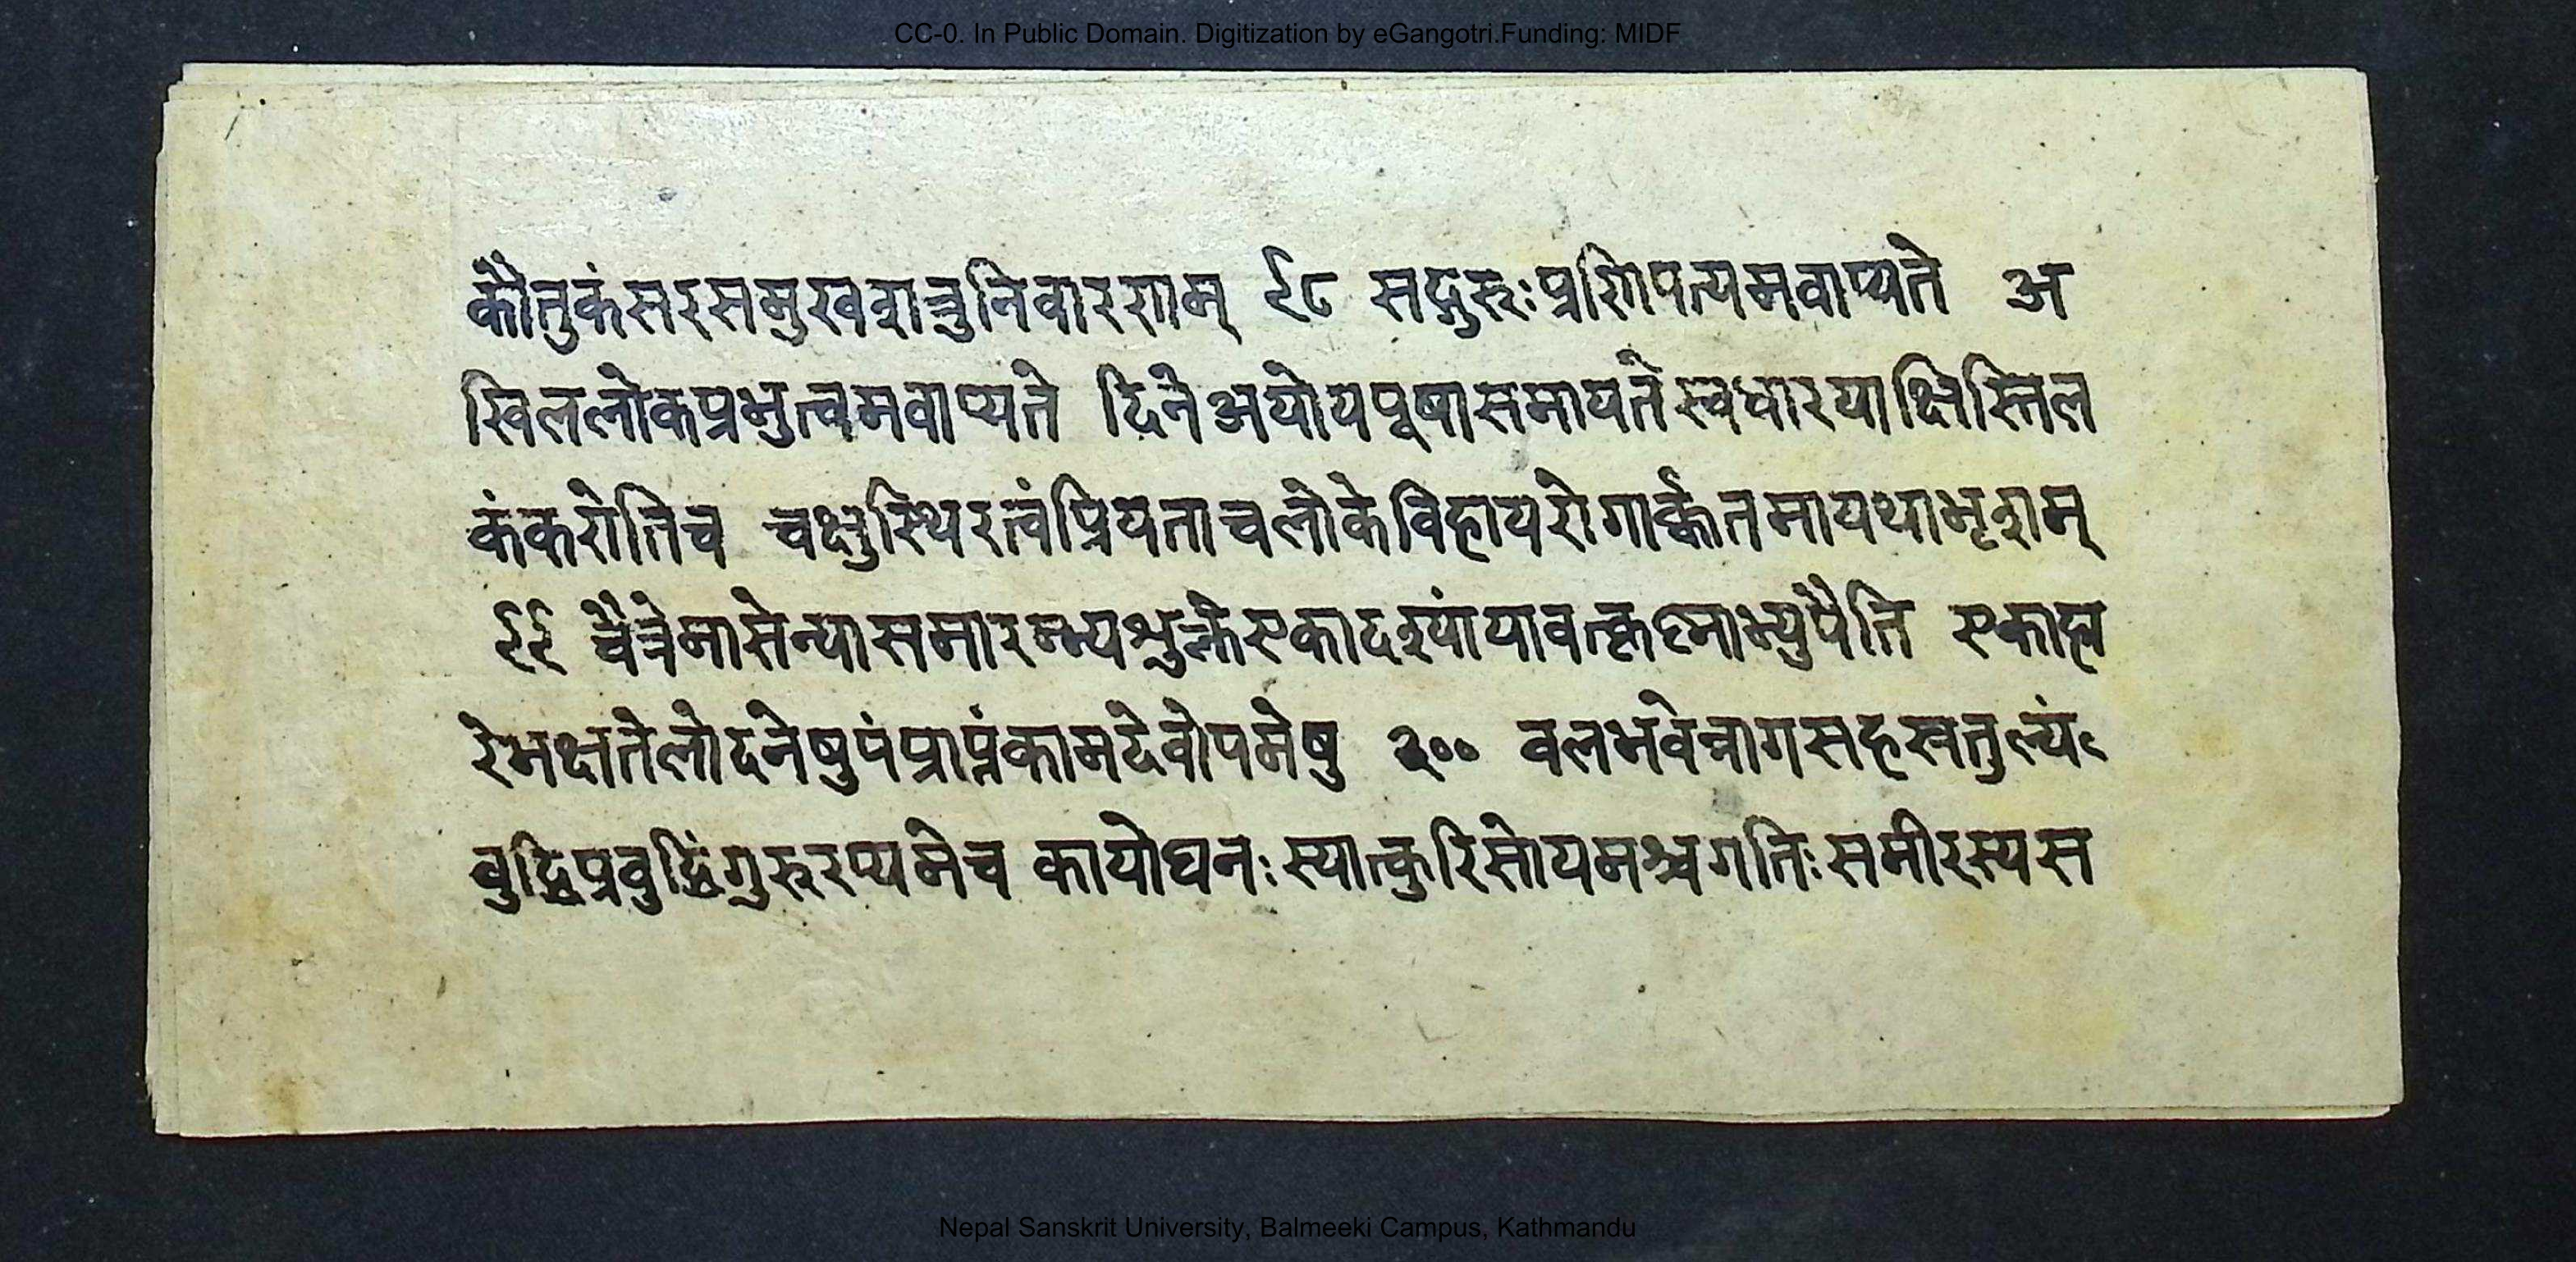 CC-0. In Public Domain. Digitization by eGangotri.Funding: MIDF
कौतुकंसरसमुखशत्रुनिवारणम् ९८ सद्गुरूःप्रणिपत्यमवाप्यते अ
खिललोकप्रभुत्वमवाप्यते दिनेअयोयपूषासमायतेस्वधारयाक्षिस्तिल
कंकरोतिच चक्षुस्थिरत्वंप्रियताचलोकेविहायरोगार्कतमायथाभृशम्
९९ चैत्रेमासेन्यासमारम्भ्यशुक्लेएकादश्यांयावत्कृष्नाभ्युपैति एकाहा
रेभक्षतेलोदनेषुपंप्राप्नंकामदेवोपमेषु २०० वलभवेन्नागसहस्रतुल्यं
वुद्धिप्रवुद्धिंगुरूरप्यमेच कायोघनःस्यात्कुरिसोयमश्चगतिःसमीरस्यस
Nepal Sanskrit University, Balmeeki Campus, Kathmandu